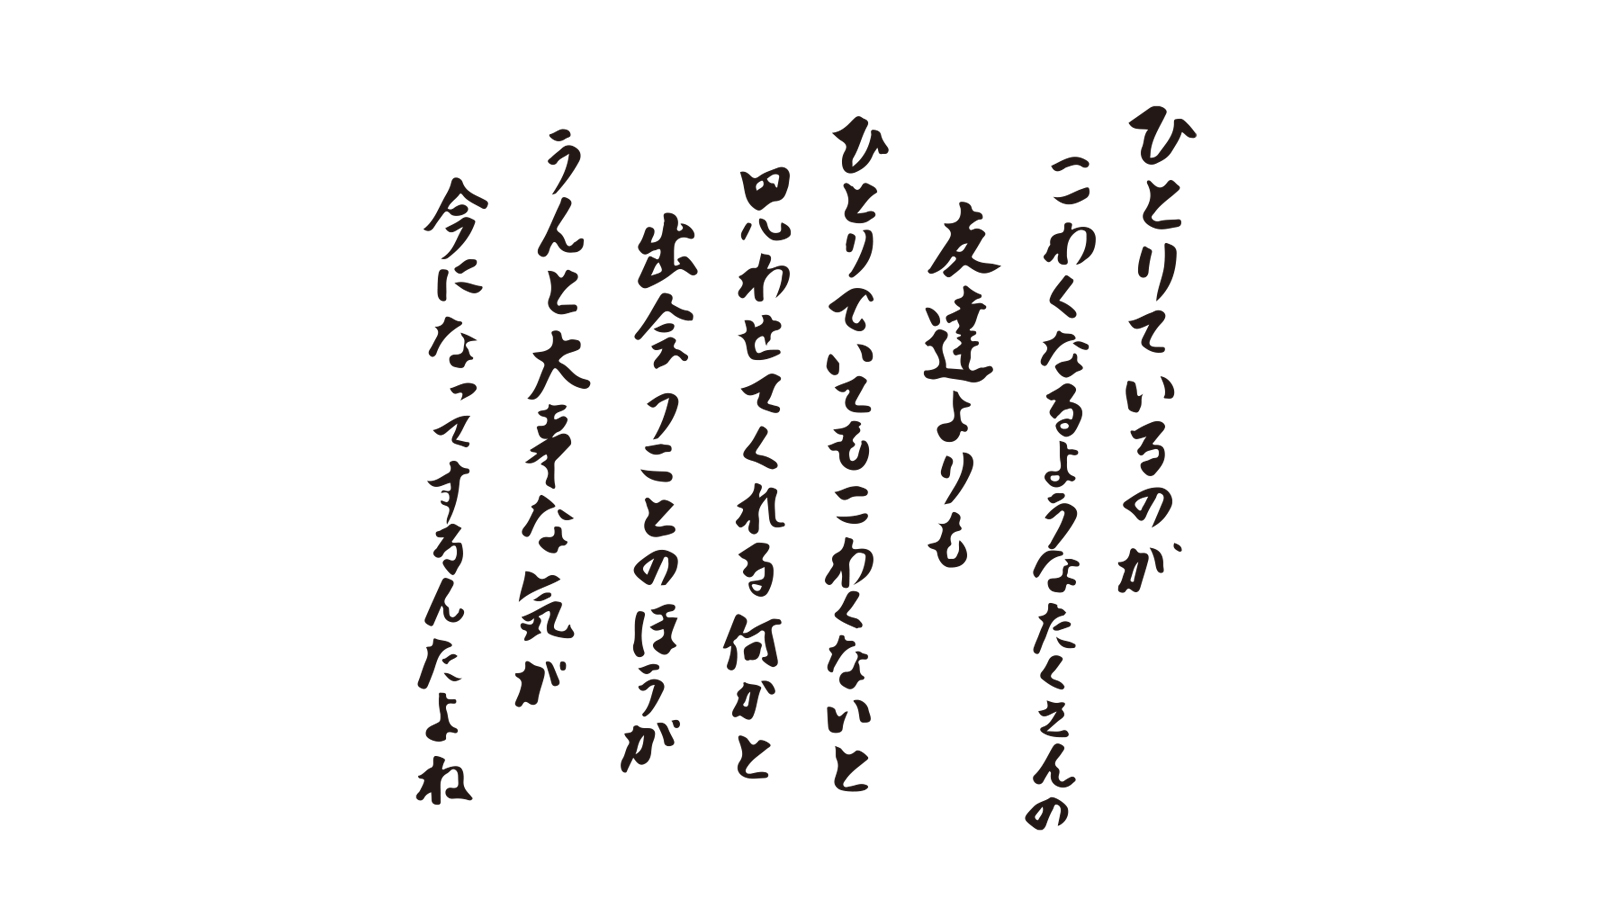 ひとりているのが
こわくなるようなたくさんの
友達よりも
ひとりでいてもこわくないと
思わせてくれる何かと
出会うことのほうが
うんと大事な気が
今になってするんだよね